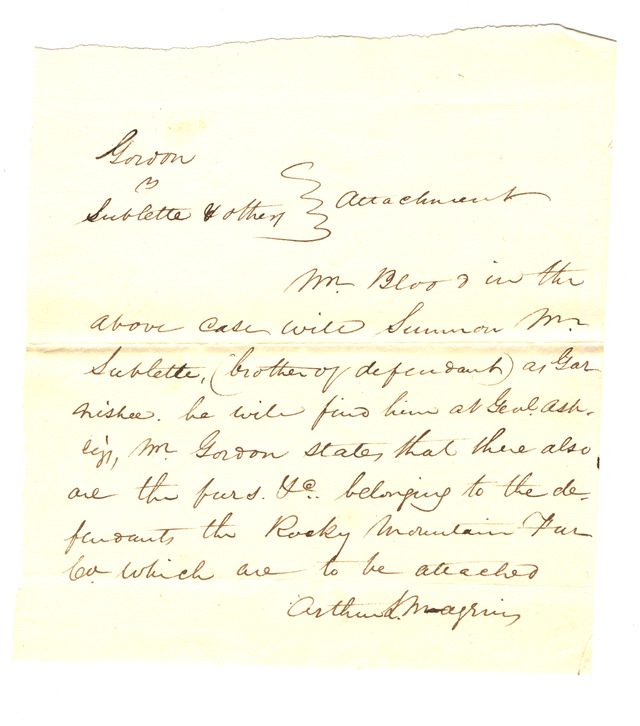 Gordon
vs
Sublette & others } Attachment
Mr. Blood in the
above case will Summon Mr.
Sublette, (brother of defendant) as Gar
nishee. he will find him at Genl. Ash-
ley's, Mr Gordon states that there also
are the furs. &c. belonging to the de-
fendants the Rocky Mountain Fur
Co. which are to be attached
Arthur L. Magenis